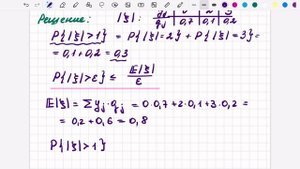 Решение: |ξ|: yj 0 2 3
qj 0,7 0,1 0,2
P{|ξ|>1} = P{|ξ|=2} + P{|ξ|=3} =
= 0,1+0,2 = 0,3
P{|ξ|>ε} ≤ E|ξ|/ε
E|ξ| = Σ yj·qj = 0·0,7+2·0,1+3·0,2 =
= 0,2+0,6 = 0,8
P{|ξ|>1}